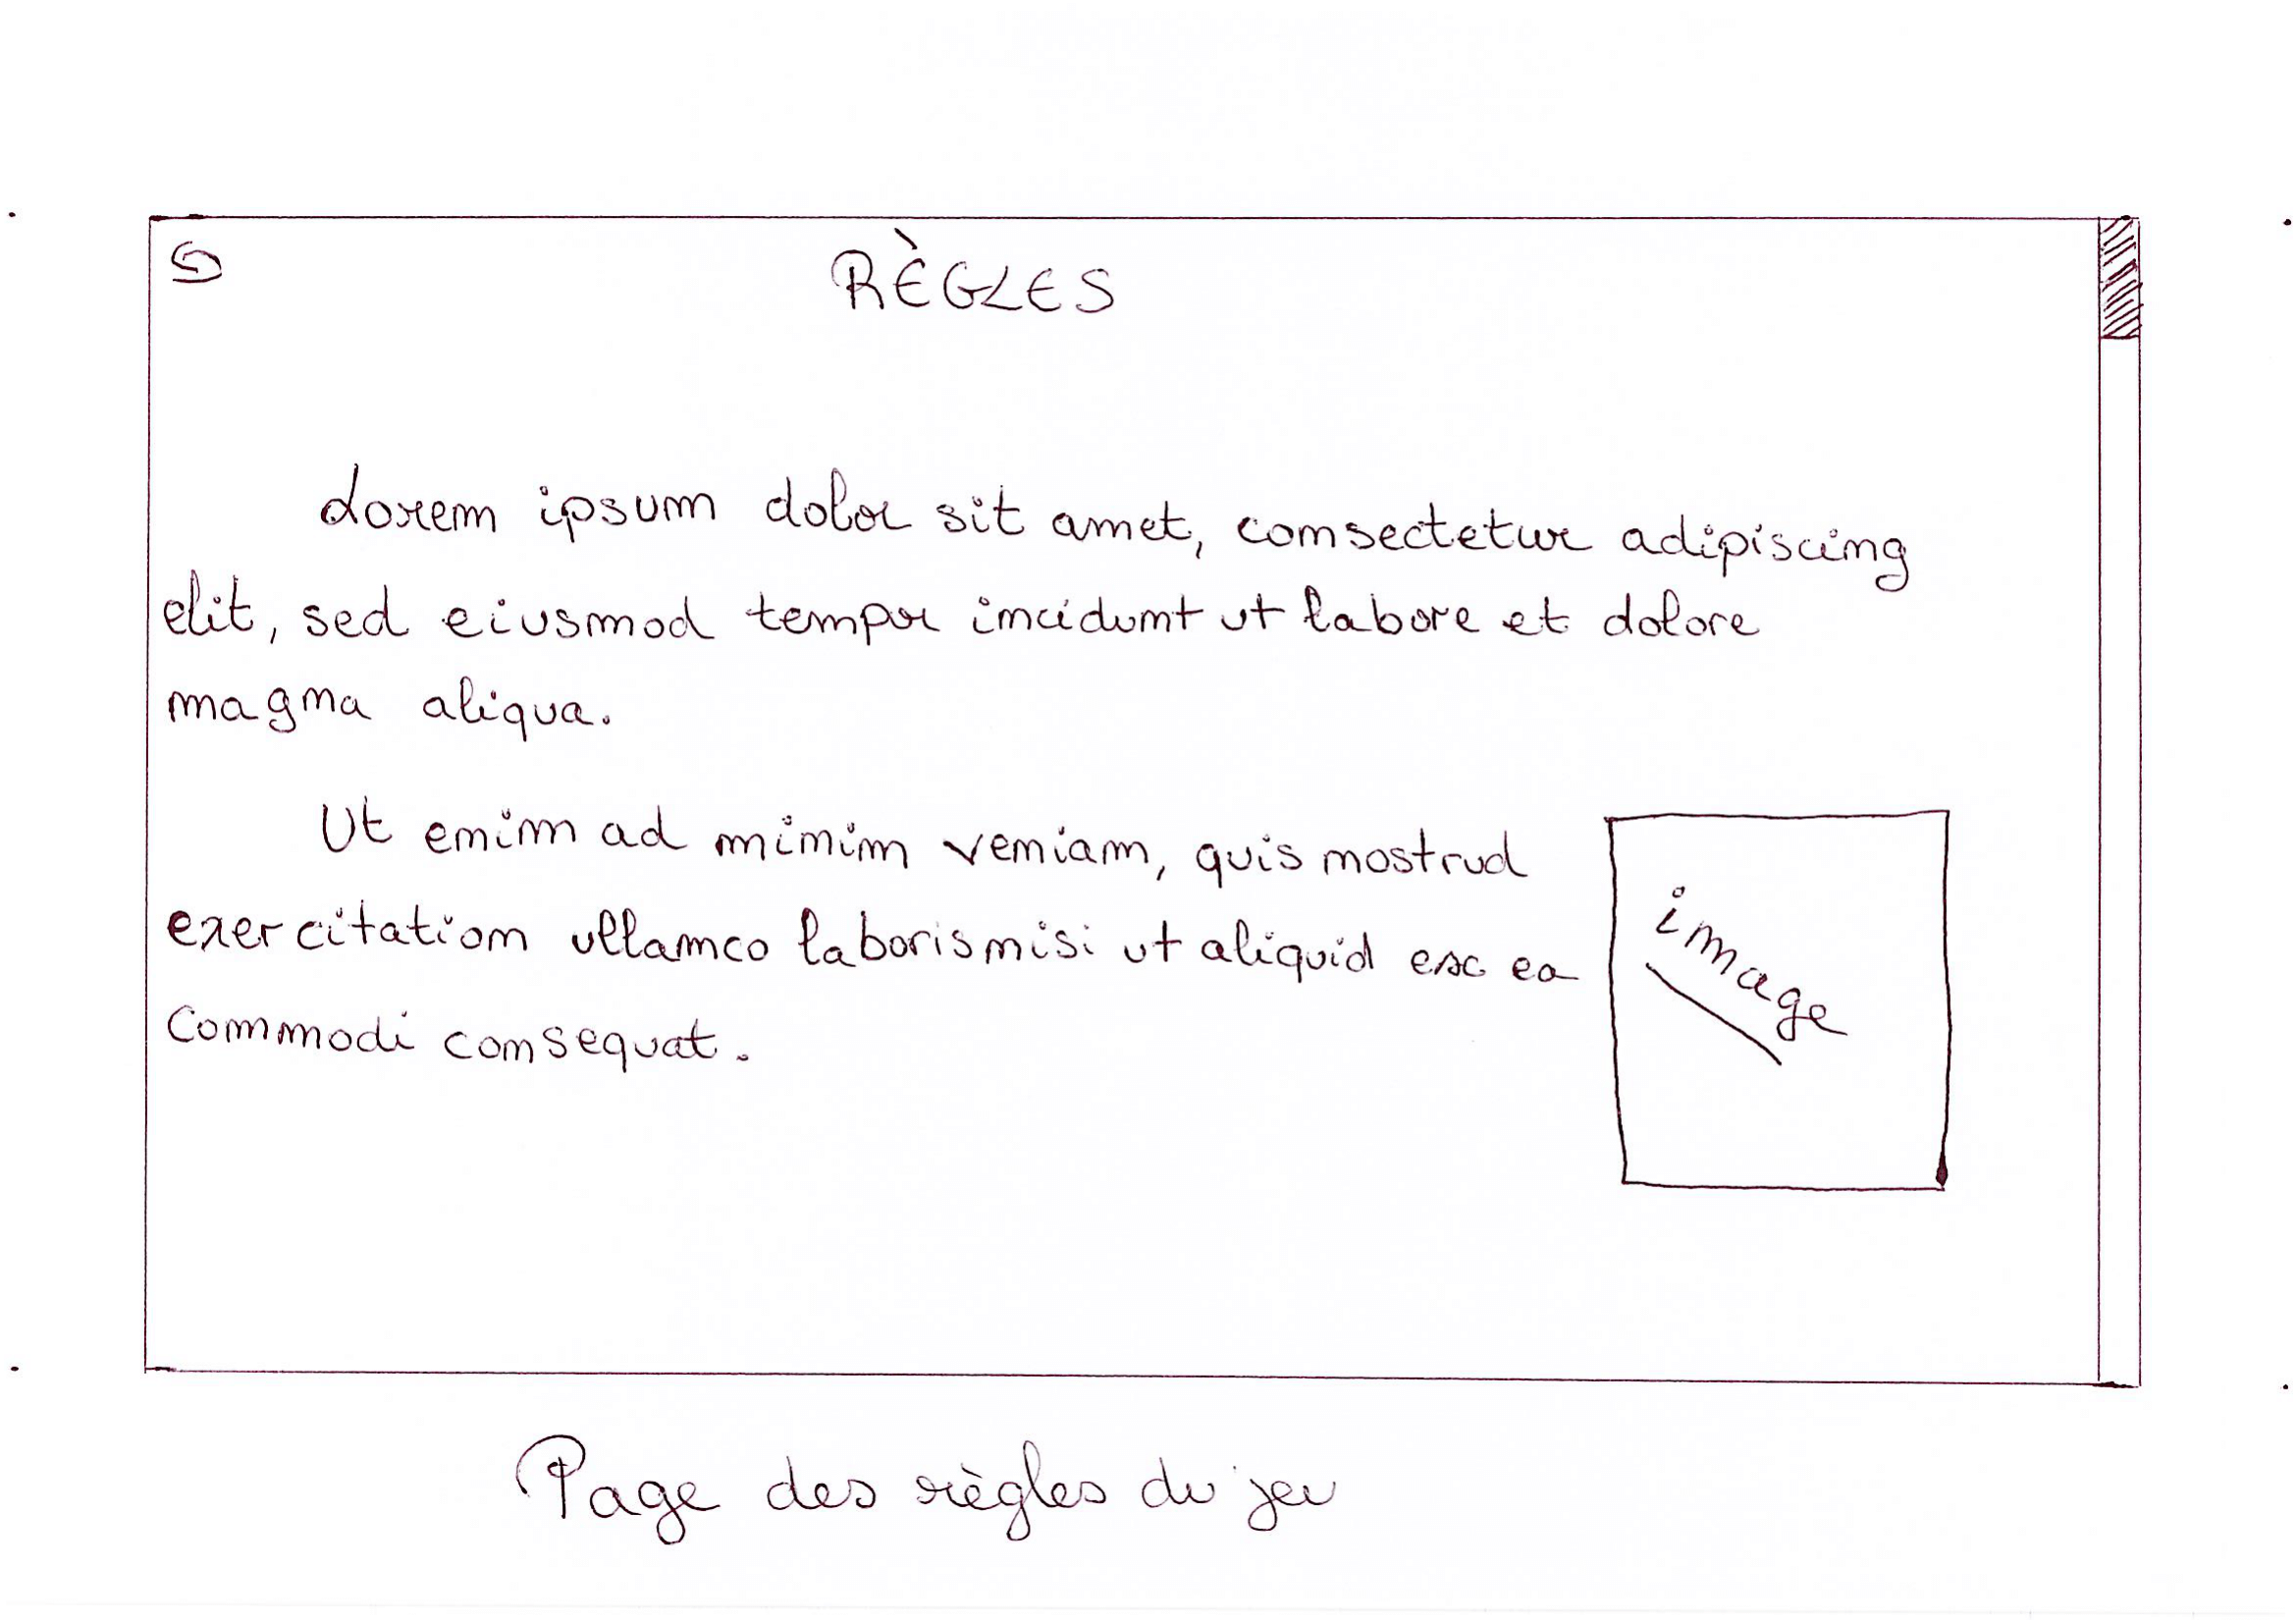 RÈGLES
Lorem ipsum dolor sit amet, consectetur adipiscing
elit, sed eiusmod tempor incidunt ut labore et dolore
magna aliqua.
Ut enim ad minim veniam, quis nostrud
exercitation ullamco laboris nisi ut aliquid exc ea
commodi consequat.
image
Page des règles du jeu